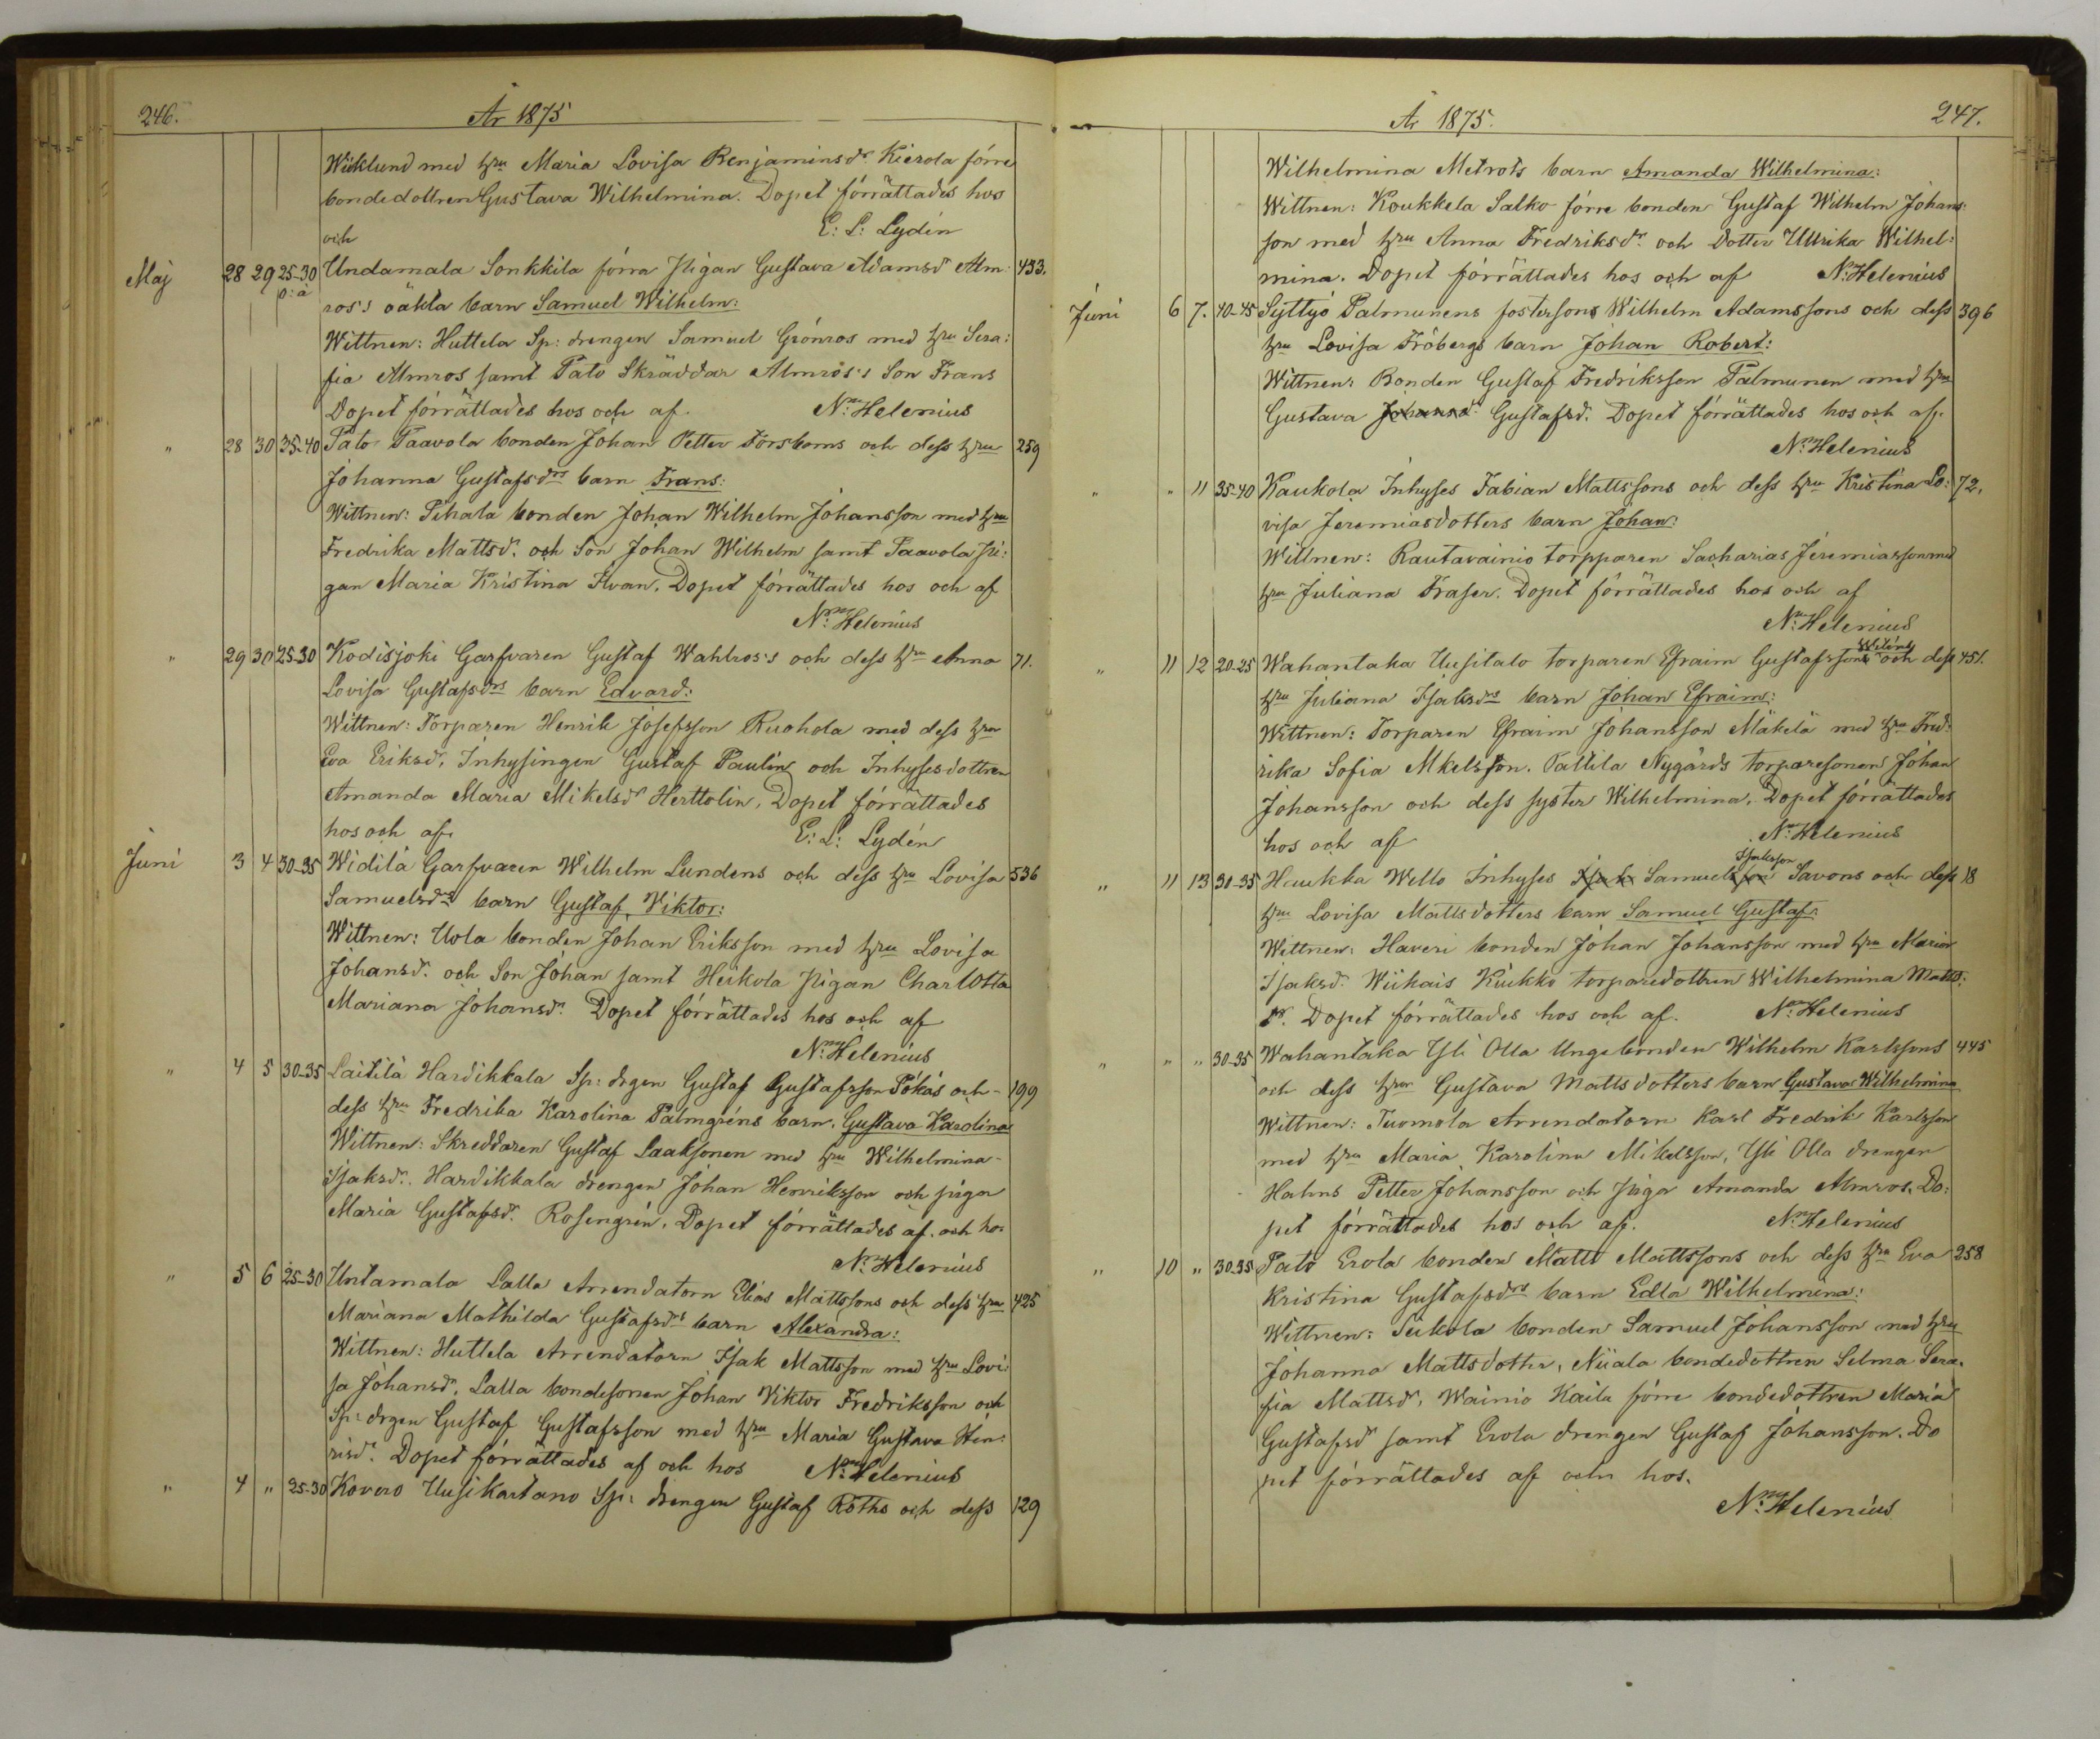 246.
År 1875
Wicklund med hru Maria Lovisa Benjaminsdr. Kierola förre
bondedottren Gustava Wilhelmina. Dopet förrättades hos
och E: L: Lydén
Maj 28 29 25-30 Undamala Sonkkila förra Pigan Gustava Adamsd Alm: 433.
o: ä ros's oäkta barn Samuel Wilhelm:
Wittnen: Huttela Sp: drengen Samuel Grönros med hru Sera:
fia Almros samt Pato Skräddar Almros's Son Frans
Dopet förrättades hos och af. N: Helenius
" 28 30 35-40 Pato Paavola bonden Johan Petter Forsboms och dess hru 259
Johanna Gustafsdrs barn Frans:
Wittnen: Pihala bonden Johan Wilhelm Johansson med hru
Fredrika Mattsdr. och Son Johan Wilhelm samt Paavola Pi:
gan Maria Kristina Ilvan. Dopet förrättades hos och af
N: Helenius
" 29 30 25-30 Kodisjoki Garfvaren Gustaf Wahlros's och dess hru Anna 71.
Lovisa Gustafsdrs barn Edvard:
Wittnen: Torparen Henrik Josefsson Ruohola med dess hru
Eva Eriksd, Inhysingen Gustaf Paulin och Inhysesdottren
Amanda Maria Mikelsdr Herttolin. Dopet förrättades
hos och af. E: L: Lydén
Juni 3 4 30-35 Widilä Garfvaren Wilhelm Lundens och dess hru Lovisa 536
Samuelsdrs barn Gustaf Viktor:
Wittnen: Uola bonden Johan Eriksson med hru Lovisa
Johansdr. och Son Johan samt Heikola Pigan Charlotta
Mariana Johansdr. Dopet förrättades hos och af
N: Helenius
" 4 5 30-35 Laitila Hardikkala Sp: drgen Gustaf Gustafsson Pökäs och 199
dess hru Fredrika Karolina Palmgréns barn. Gustava Karolina
Wittnen: Skreddaren Gustaf Laaksonen med hru Wilhelmina
Isaksdr. Hardikkala drengen Johan Henriksson och piga
Maria Gustafsdr. Rosengrén. Dopet förrättades af. och hos
N: Helenius
" 5 6 25-30 Untamala Lalla Arrendatorn Elias Mattssons och dess hru 425
Mariana Mathilda Gustafsdrs barn Alexandra:
Wittnen: Huttela Arrendatorn Isak Mattsson med hru Lovi:
sa Johansdr. Lalla bondesonen Johan Viktor Fredriksson och
Sp: drgen Gustaf Gustafsson med hru Maria Gustava Hen:
risd. Dopet förrättades af och hos N: Helenius
" 4 " 25-30 Kovero Uusikartano Sp: drengen Gustaf Roths och dess 129
År 1875. 247.
Wilhelmina Metrots barn Amanda Wilhelmina:
Wittnen: Koukkela Salko förre bonden Gustaf Wilhelm Johans:
son med hru Anna Fredriksdr. och Dotter Ullrika Wilhel:
mina. Dopet förrättades hos och af N: Helenius
Juni 6 7. 40-45 Syttyö Palmunens fostersons Wilhelm Adamssons och dess 396
hru Lovisa Fröbergs barn Johan Robert:
Wittnen: Bonden Gustaf Fredriksson Palmunen med hru
Gustava Johansd. Gustafsd. Dopet förrättades hos och af.
N: Helenius
" " 11 35-40 Kaukola Inhyses Fabian Mattssons och dess hru Kristina Lo: 72.
visa Jeremiasdotters barn Johan:
Wittnen: Rautavainio torpparen Sacharias Jeremiasson med
hru Juliana Fraser. Dopet förrättades hos och af
N: Helenius
" 11 12 20-25 Wahantaka Uusitalo torparen Efraim Gustafssons Viléns och dess 451.
hru Juliana Isaksdrs barn Johan Efraim:
Wittnen: Torparen Efraim Johansson Mäkelä med hru Fred:
rika Sofia Mkelsson. Pattila Nygårds torparesonen Johan
Johansson och dess syster Wilhelmina. Dopet förrättades
hos och af N: Helenius
" 11 13 30-35 Haukka Wello Inhyses Isak Samuelsson Isaksson Savons och dess 18
hru Lovisa Mattsdotters barn Samuel Gustaf:
Wittnen: Haveri bonden Johan Johansson med hru Maria
Isaksdr. Wiikais Kiukko torparedottren Wilhelmina Matts:
dr. Dopet förrättades hos och af. N: Helenius
" " " 30-35 Wahantaka Yli Olla Ungebonden Wilhelm Karlssons 445
och dess hru Gustava Mattsdotters barn Gustava Wilhelmina
Wittnen: Tuomola Arrendatorn Karl Fredrik Karlsson
med hru Maria Karolina Mikelsson, Yli Olla drengen
Halms Petter Johansson och Piga Amanda Almros. Do:
pet förrättades hos och af. N: Helenius
" 10 " 30-35 Pato Erola bonden Matts Mattssons och dess hru Eva 258
Kristina Gustafsdrs barn Edla Wilhelmina:
Wittnen: Seikola bonden Samuel Johansson med hru
Johanna Mattsdotter, Niiala bondedottren Selma Sera:
fia Mattsdr, Wainio Kaila förre bondedottren Maria
Gustafsdr samt Erola drengen Gustaf Johansson. Do
pet förrättades af och hos.
N: Helenius